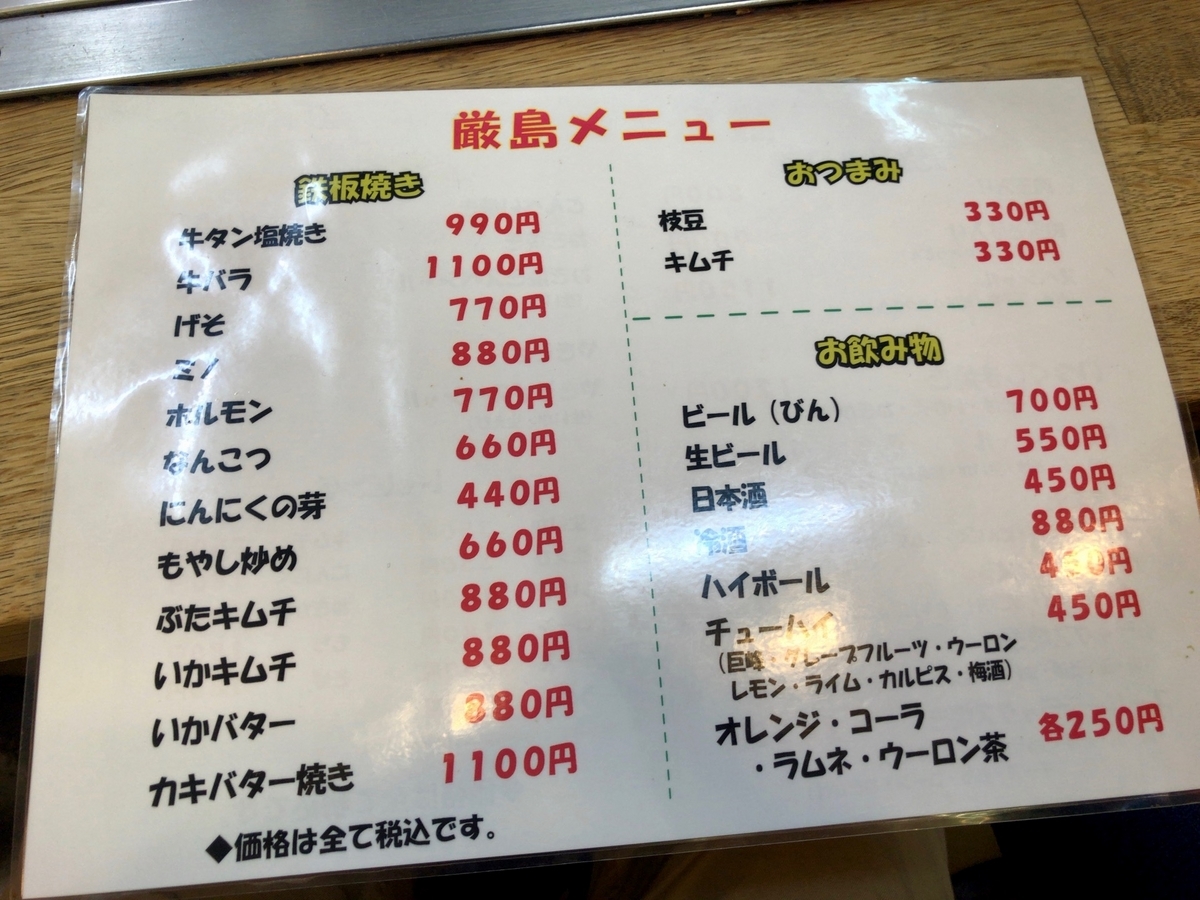 厳島メニュー
鉄板焼き
牛タン塩焼き 990円
牛バラ 1100円
げそ 770円
ミノ 880円
ホルモン 770円
なんこつ 660円
にんにくの芽 440円
もやし炒め 660円
ぶたキムチ 880円
いかキムチ 880円
いかバター 880円
カキバター焼き 1100円
◆価格は全て税込です。
おつまみ
枝豆 330円
キムチ 330円
お飲み物
ビール（びん） 700円
生ビール 550円
日本酒 450円
冷酒 880円
ハイボール
チューハイ 450円
（巨峰・グレープフルーツ・ウーロン
レモン・ライム・カルピス・梅酒）
オレンジ・コーラ 各250円
・ラムネ・ウーロン茶